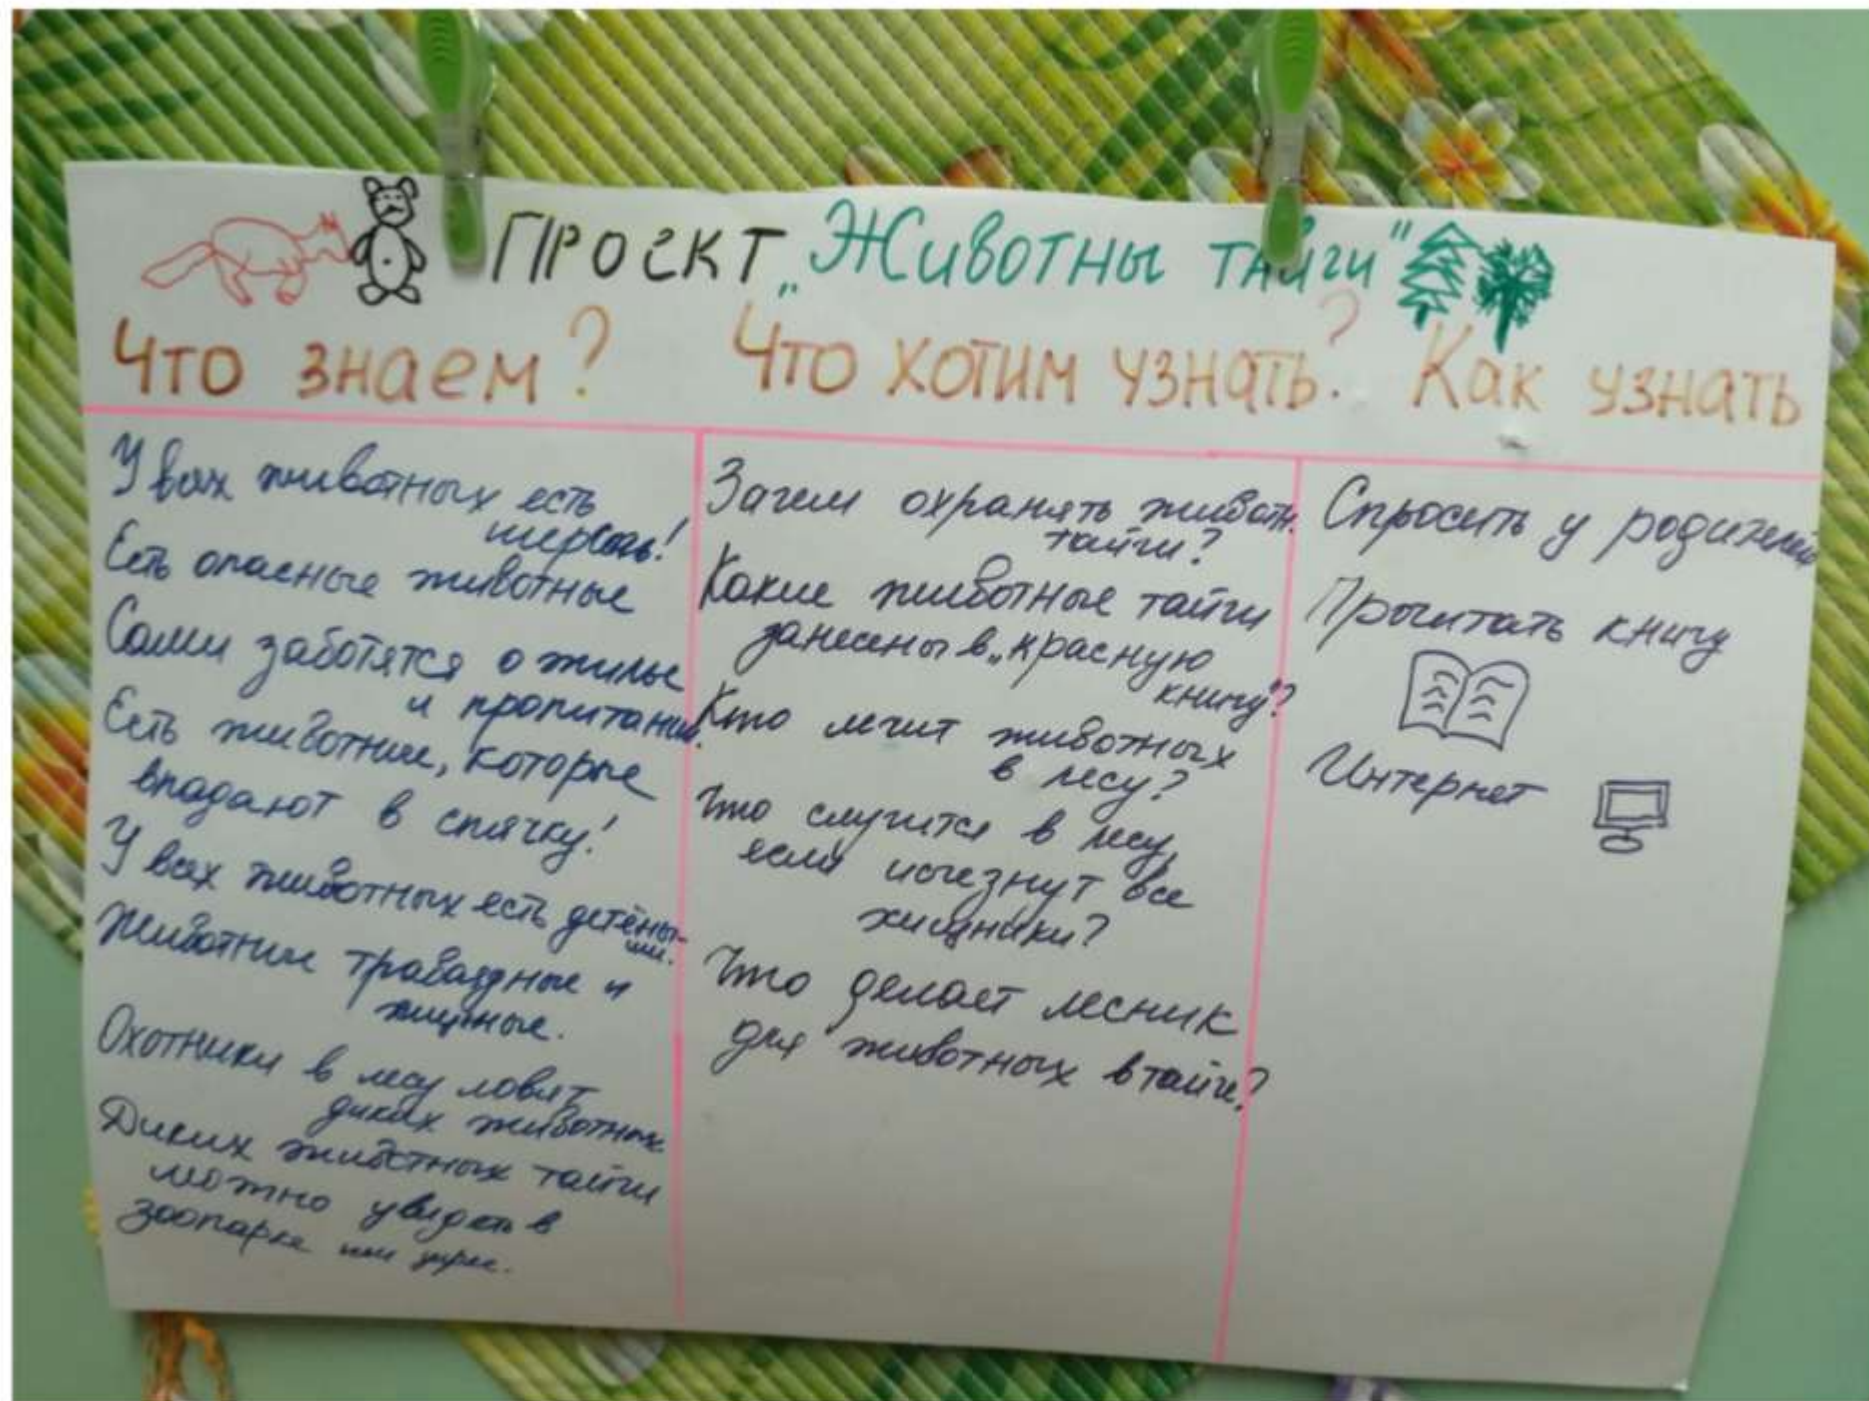 Проект „Животны тайги"
Что знаем?
У всех животных есть
шерсть!
Есть опасные животные
Сами заботятся о жилье
и пропитании.
Есть животные, которые
впадают в спячку!
У всех животных есть детёны-
ши.
Животные траваядные и
хищные.
Охотники в лесу ловят
диких животных.
Диких животных тайги
можно увидеть в
зоопарке или цирке.
Что хотим узнать?
Зачем охранять животн.
тайги?
Какие животные тайги
занесены в „красную
книгу"?
Кто лечит животных
в лесу?
Что случится в лесу,
если исчезнут все
хищники?
Что делает лесник
для животных в тайге?
Как узнать
Спросить у родителей
Прочитать книгу
Интернет